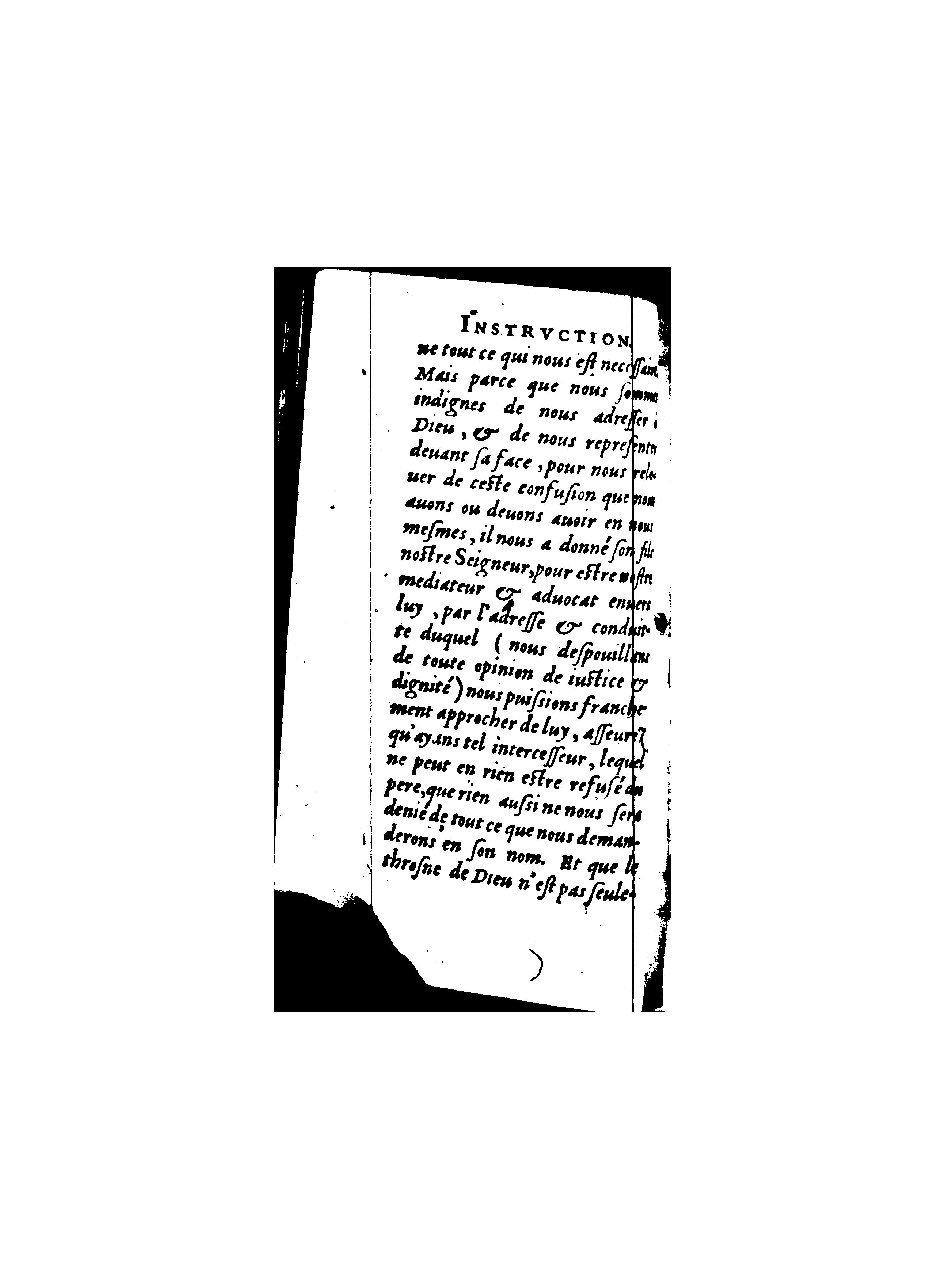 INSTRVCTION.
ne tout ce qui nous eſt neceſſaire.
Mais parce que nous ſommes
indignes de nous adreſſer à
Dieu, & de nous repreſenter
deuant ſa face, pour nous rele-
uer de ceſte confuſion que nous
auons ou deuons auoir en nous
meſmes, il nous a donné ſon fils
noſtre Seigneur, pour eſtre noſtre
mediateur & aduocat enuers
luy, par l'adreſſe & condui-
te duquel (nous deſpouillans
de toute opinion de iuſtice &
dignité) nous puiſsions franche
ment approcher de luy, aſſeurez
qu'ayans tel interceſſeur, lequel
ne peut en rien eſtre refuſé du
pere, que rien auſsi ne nous ſera
denié de tout ce que nous deman-
derons en ſon nom. Et que le
throſne de Dieu n'eſt pas ſeule-